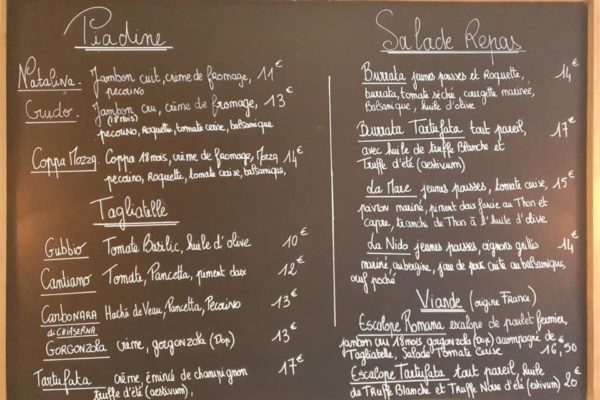 Piadine
Natalina. Jambon cuit, crème de fromage, 11€
pecorino
Crudo. Jambon cru, crème de fromage, 13€
(18 mois)
pecorino, Roquette, tomate cerise, balsamique
Coppa Mozza. Coppa 18 mois, crème de fromage, Mozza 14€
pecorino, Roquette, tomate cerise, balsamique,
Tagliatelle
Gubbio Tomate Basilic, huile d'olive 10€
Cantiano Tomate, Pancetta, piment doux 12€
Carbonara Haché de Veau, Pancetta, Pecorino 13€
di Caiserna
Gorgonzola crème, gorgonzola (Dop) 13€
Tartufata crème, émincé de champignon 17€
truffe d'été (aestivum),
Salade Repas
Burrata jeunes pousses et Roquette, 14€
burrata, tomate séché, courgette marinée,
Balsamique, huile d'olive
Burrata Tartufata tout pareil, 17€
avec huile de truffe Blanche et
Truffe d'été (aestivum)
La Mare jeunes pousses, tomate cerise, 15€
poivron mariné, piment doux farcie au Thon et
capre, tranche de Thon à l'huile d'olive
La Nido jeunes pousses, oignons grillés 14€
mariné, aubergine, joue de porc cuite au balsamique,
œuf poché
Viande (origine France)
Escalope Romana escalope de poulet fermier,
jambon cru 18 mois, gorgonzola (Dop) accompagné de
Tagliatelle, Salade Tomate Cerise 16,50
Escalope Tartufata tout pareil, huile
de Truffe Blanche et Truffe Noire d'été (estivum) 20€